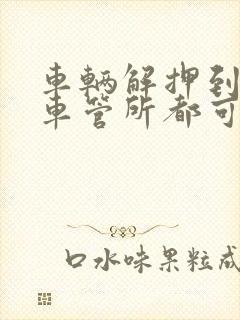 車輛解押到
車管所都可
口水味果粒成